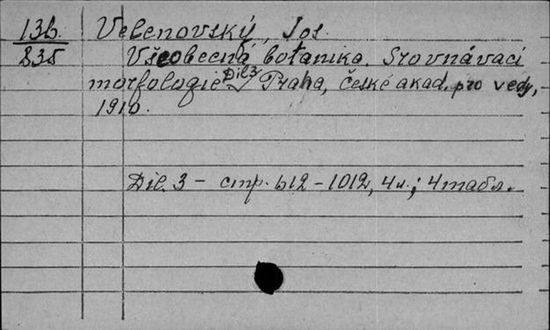 13b. Velenovský, Jos.
835 Všeobecná botanika. Srovnávací
morfologie Díl 3 Praha, České akad. pro vedy,
1910.
Díl. 3 – стр. 612–1012, 4 л.; 4 табл.